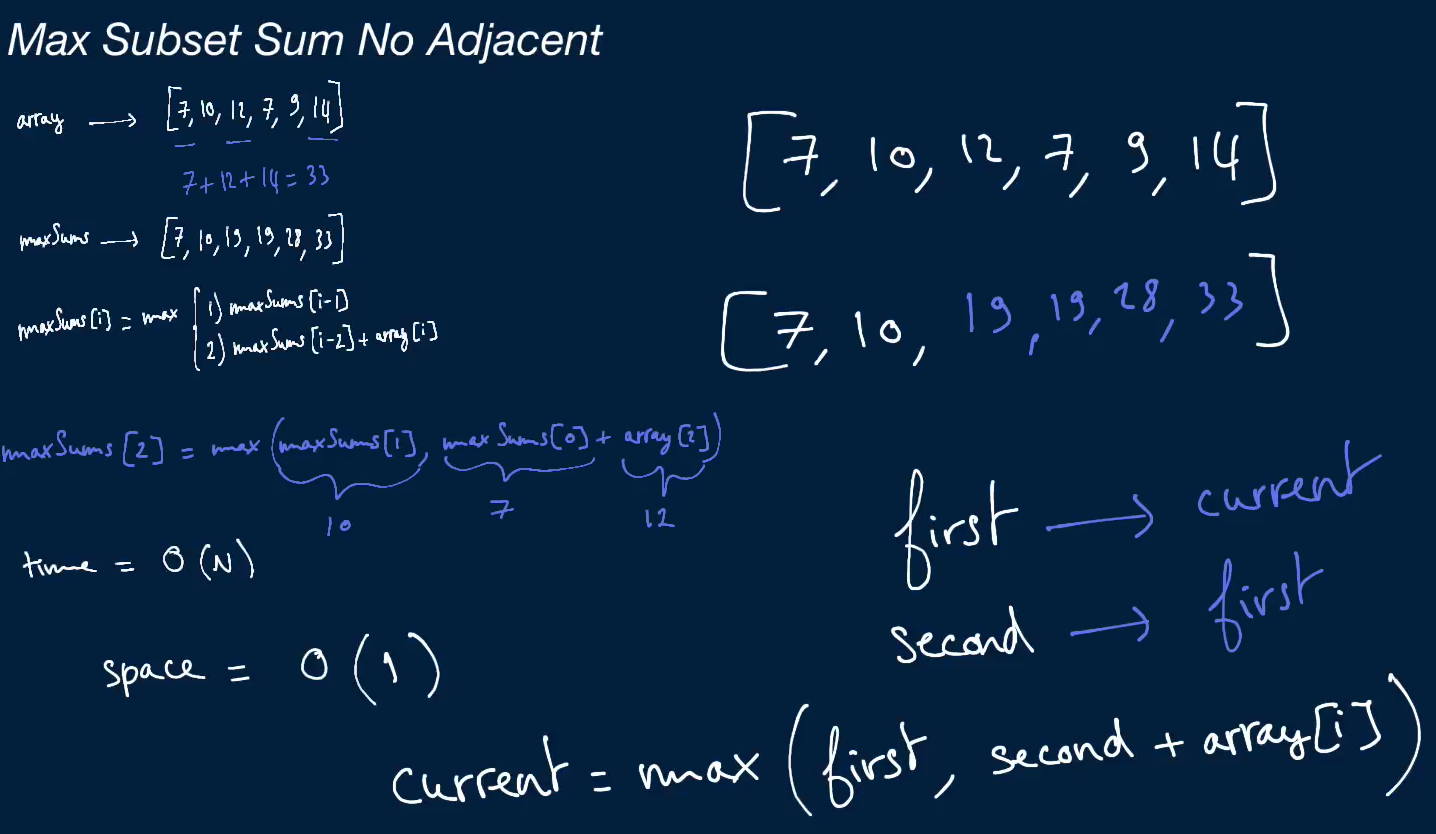 Max Subset Sum No Adjacent
array → [7, 10, 12, 7, 9, 14]
7 + 12 + 14 = 33
maxSums → [7, 10, 19, 19, 28, 33]
maxSums[i] = max { 1) maxSums[i-1]
2) maxSums[i-2] + array[i]
maxSums[2] = max(maxSums[1], maxSums[0] + array[2])
10 7 12
time = O(N)
space = O(1)
[7, 10, 12, 7, 9, 14]
[7, 10, 19, 19, 28, 33]
first → current
second → first
current = max(first, second + array[i])